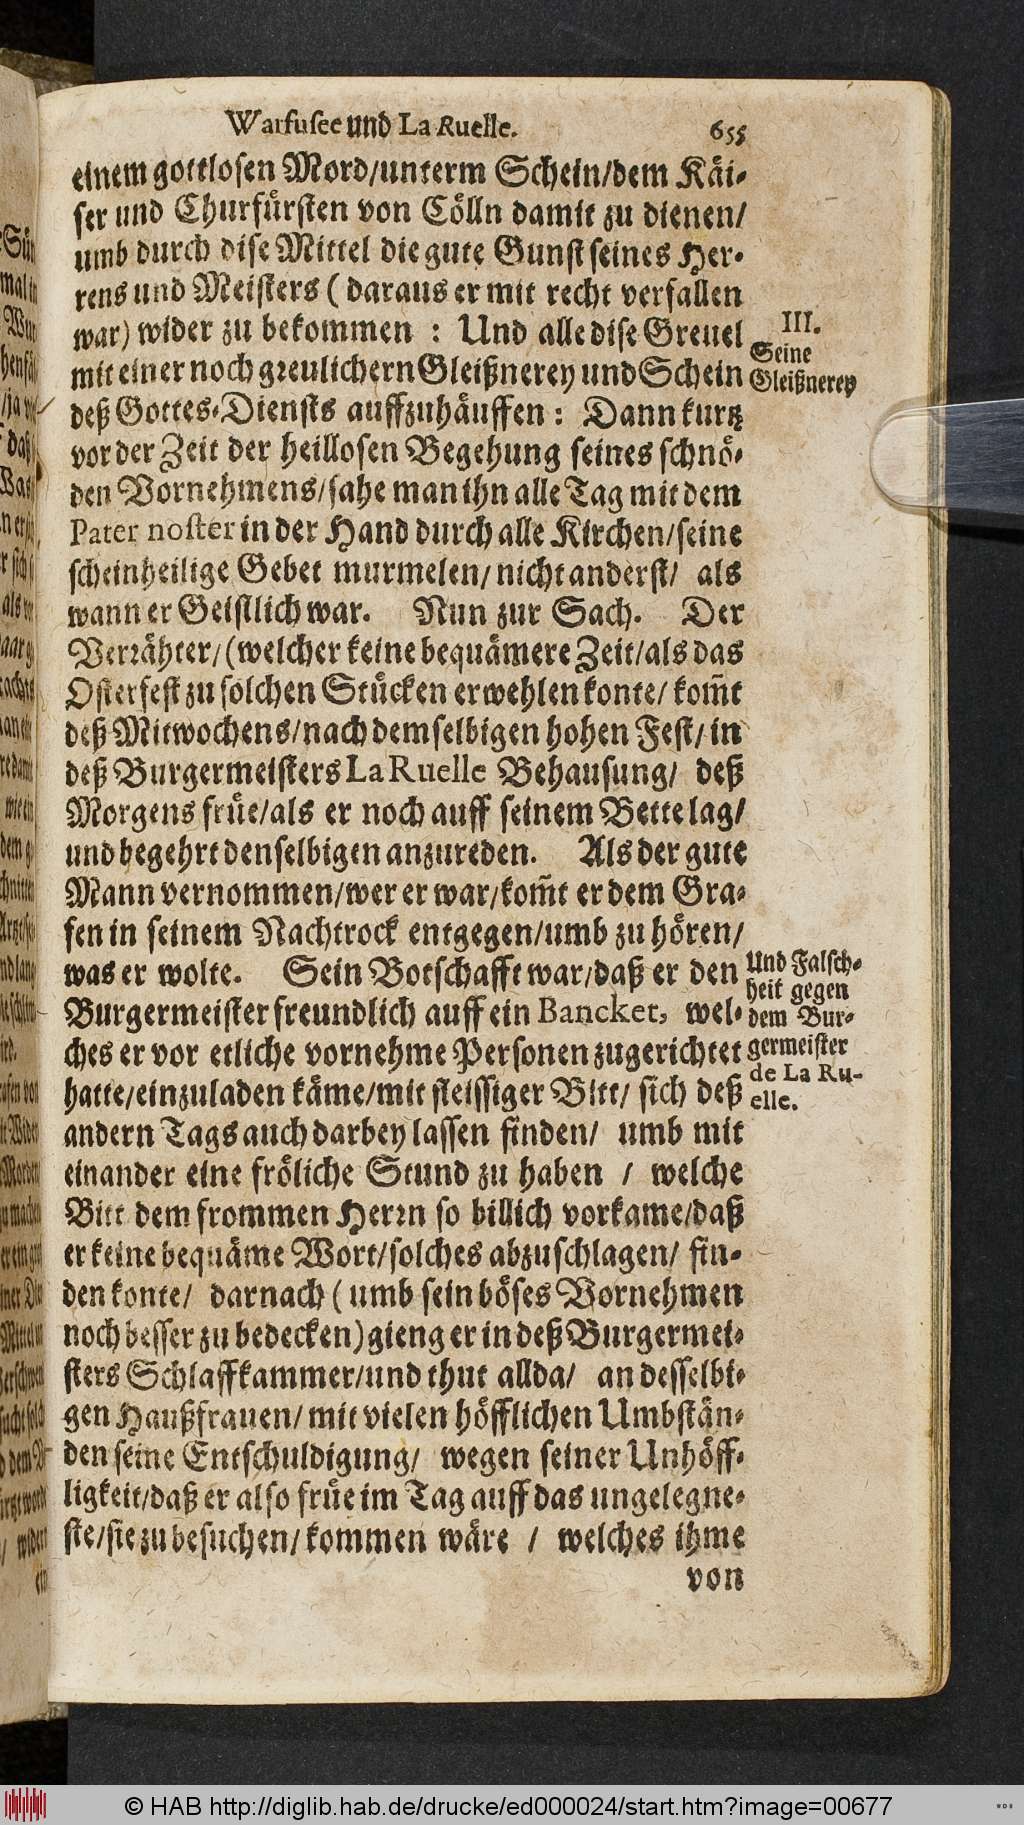 Warfusee und La Ruelle. 655
einem gottlosen Mord/unterm Schein/dem Käi-
ser und Churfürsten von Cölln damit zu dienen/
umb durch dise Mittel die gute Gunst seines Her-
rens und Meisters ( daraus er mit recht verfallen
war) wider zu bekommen : Und alle dise Greuel
mit einer noch greulichern Gleißnerey und Schein
deß Gottes-Diensts auffzuhäuffen: Dann kurtz
vor der Zeit der heillosen Begehung seines schnö-
den Vornehmens/sahe man ihn alle Tag mit dem
Pater noster in der Hand durch alle Kirchen/seine
scheinheilige Gebet murmelen/nicht anderst/ als
wann er Geistlich war. Nun zur Sach. Der
Verrähter/(welcher keine bequämere Zeit/als das
Osterfest zu solchen Stücken erwehlen konte/kom̃t
deß Mitwochens/nach demselbigen hohen Fest/in
deß Burgermeisters La Ruelle Behausung/ deß
Morgens früe/als er noch auff seinem Bette lag/
und begehrt denselbigen anzureden. Als der gute
Mann vernommen/wer er war/kom̃t er dem Gra-
fen in seinem Nachtrock entgegen/umb zu hören/
was er wolte. Sein Botschafft war/daß er den
Burgermeister freundlich auff ein Bancket, wel-
ches er vor etliche vornehme Personen zugerichtet
hatte/einzuladen käme/mit fleissiger Bitt/ sich deß
andern Tags auch darbey lassen finden/ umb mit
einander eine fröliche Stund zu haben / welche
Bitt dem frommen Herrn so billich vorkame/daß
er keine bequäme Wort/solches abzuschlagen/ fin-
den konte/ darnach ( umb sein böses Vornehmen
noch besser zu bedecken) gieng er in deß Burgermei-
sters Schlaffkammer/und thut allda/ an desselbi-
gen Haußfrauen/mit vielen höfflichen Umbstän-
den seine Entschuldigung/ wegen seiner Unhöff-
ligkeit/daß er also früe im Tag auff das ungelegne-
ste/sie zu besuchen/kommen wäre / welches ihme
von
III.
Seine
Gleißnerey
Und Falsch-
heit gegen
dem Bur-
germeister
de La Ru-
elle.
© HAB http://diglib.hab.de/drucke/ed000024/start.htm?image=00677